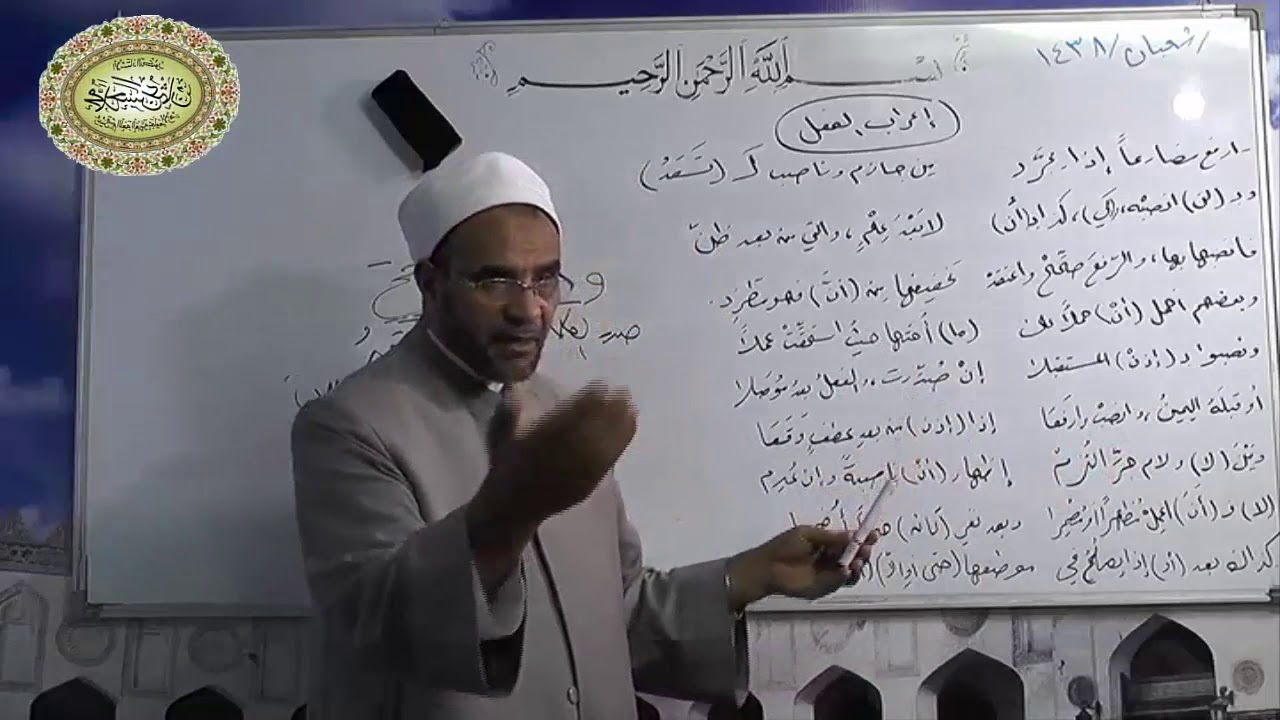 /شعبان/١٤٣٨
بسم اللَّه الرَّحْمٰن الرَّحِيم
إعراب الفعل
ارفع مضارعاً إذا يجرَّد من جازم وناصب كَـ (تَسْعَدُ)
وبـ (لن) انصبْه، و(كي)، كذا بـ(أن) لا بَعْدَ عِلْمٍ، والتي من بعد ظنّ
فانصبها بها، والرَّفعَ صَحِّحْ واعتقدْ تخفيفها مِن (أنَّ) فهو مطَّرِد.
وبعضهم أهمل (أنْ) حملاً على (ما) أختها حيثُ استحقَّتْ عملاً
ونصبوا بـ (إذنْ) المستقبلا إنْ صُدِّرت، والفعلُ بعدُ مُوصَلا
أو قبلَهُ اليمينُ، وانصبْ وارفَعَا إذا (إذن) من بعدِ عطفٍ وَقَعَا
وبَيْن (لا) ولام جرٍّ التُزِمْ إظهار (أنْ) ناصبةً وإن عُدِم
(لا) فـ (أنَ) اعمِلْ مُظهِراً أو مُضْمِرا وبعد نفي (كانَ)
كذاك بعد (أو) إذا يصلحُ في موضعها (حتى أو
صدر